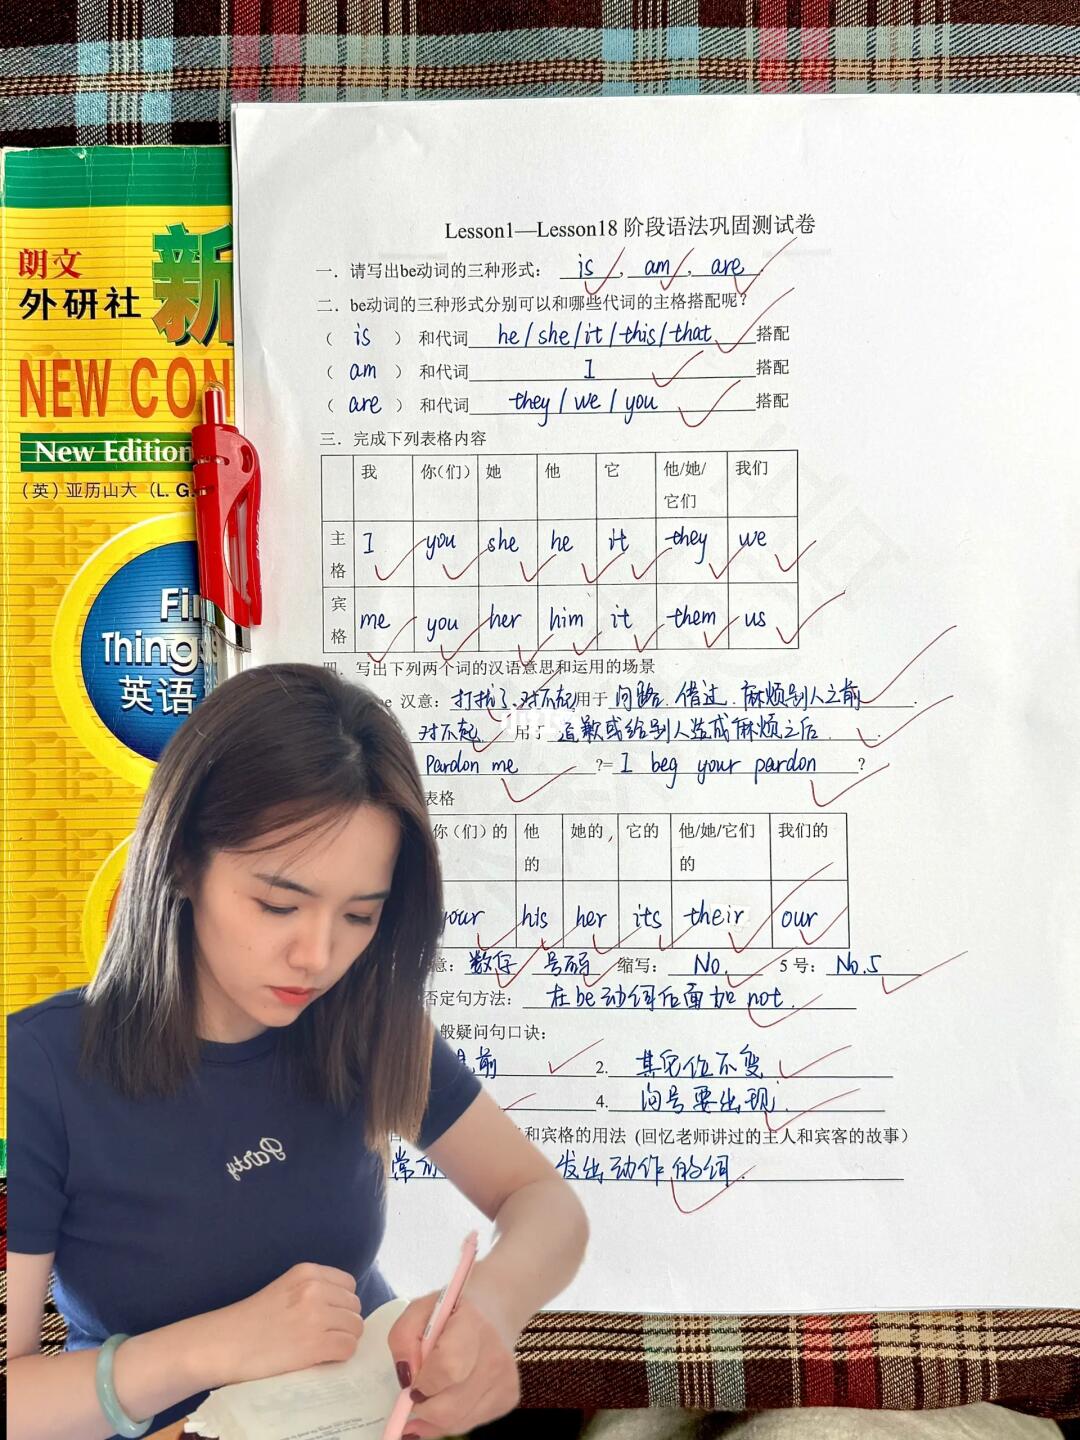 朗文
外研社
新
NEW CON
New Edition
（英）亚历山大（L. G.
Fir
Things
英语
Lesson1—Lesson18 阶段语法巩固测试卷
一．请写出be动词的三种形式： is , am , are .
二．be动词的三种形式分别可以和哪些代词的主格搭配呢？
（ is ） 和代词 he/she/it/this/that 搭配
（ am ） 和代词 I 搭配
（ are ） 和代词 they/we/you 搭配
三．完成下列表格内容
我 你(们) 她 他 它 他/她/它们 我们
主格 I you she he it they we
宾格 me you her him it them us
四．写出下列两个词的汉语意思和运用的场景
汉意：打扰了,对不起 用于 问路.借过.麻烦别人之前 .
对不起 用于 道歉或给别人造成麻烦之后 .
Pardon me ?= I beg your pardon ?
表格
你（们）的 他的 她的, 它的 他/她/它们的 我们的
your his her its their our
意：数字 号码 缩写： No. 5 号： No.5
否定句方法： 在be动词后面加 not.
般疑问句口诀：
前 2. 其它位不变
4. 问号要出现.
和宾格的用法 (回忆老师讲过的主人和宾客的故事)
常 发出动作的词.
Party